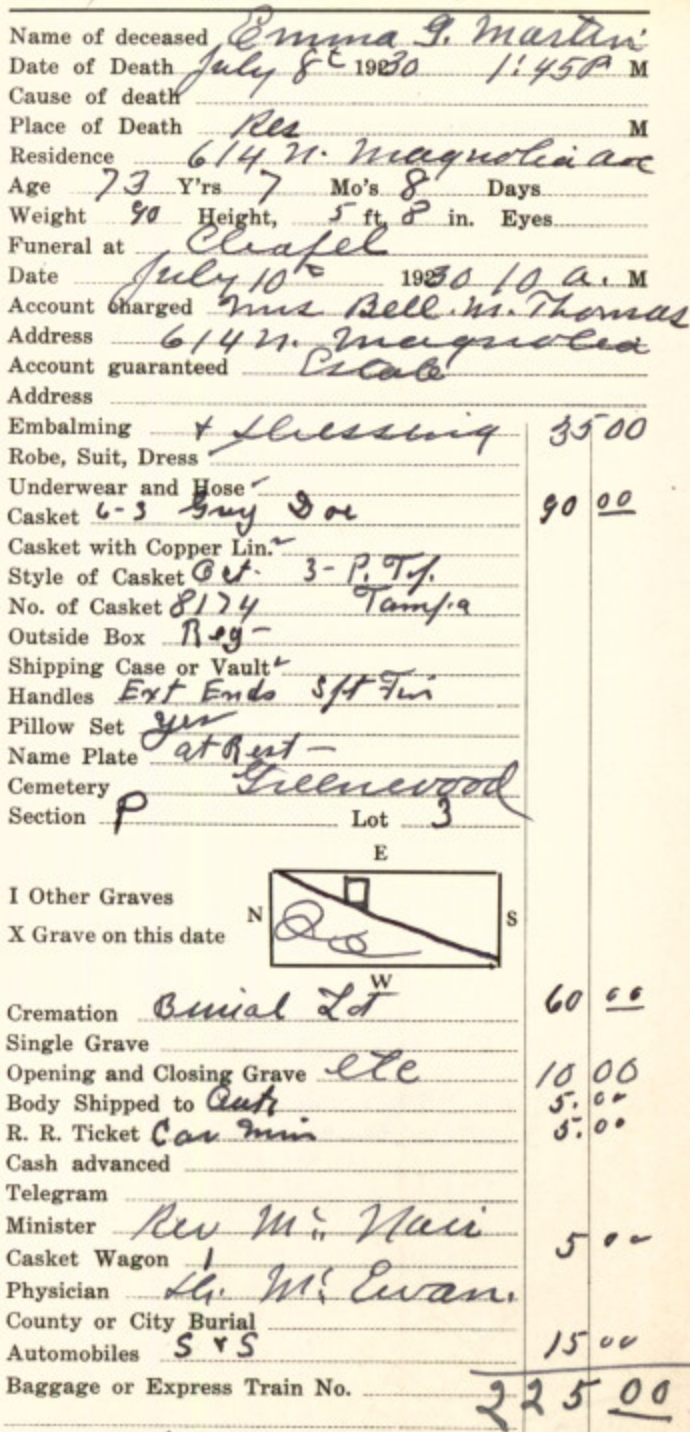 Name of deceased Emma G. Martin
Date of Death July 8t 1930 1:45 P M
Cause of death
Place of Death Res M
Residence 614 N. Magnolia Ave
Age 73 Y'rs 7 Mo's 8 Days
Weight 90 Height, 5 ft 8 in. Eyes
Funeral at Chapel
Date July 10t 1930 10 a. M
Account charged Mrs Bell. M. Thomas
Address 614 N. Magnolia
Account guaranteed Estate
Address
Embalming + Dressing 35 00
Robe, Suit, Dress
Underwear and Hose
Casket 6-3 Grey Doe 90 00
Casket with Copper Lin.
Style of Casket Oct. 3-P. Top.
No. of Casket 8174 Tampa
Outside Box Reg-
Shipping Case or Vault
Handles Ext Ends
Pillow Set yes
Name Plate at Rest -
Cemetery Greenwood
Section P Lot 3
E
I Other Graves
N S
X Grave on this date
W
Cremation Burial Lot 60 00
Single Grave
Opening and Closing Grave etc 10 00
Body Shipped to 5.00
R. R. Ticket Car 5.00
Cash advanced
Telegram
Minister Rev Mc Nair 5 00
Casket Wagon 1
Physician Dr. Mc Ewan.
County or City Burial
Automobiles S & S 15 00
Baggage or Express Train No. 225 00